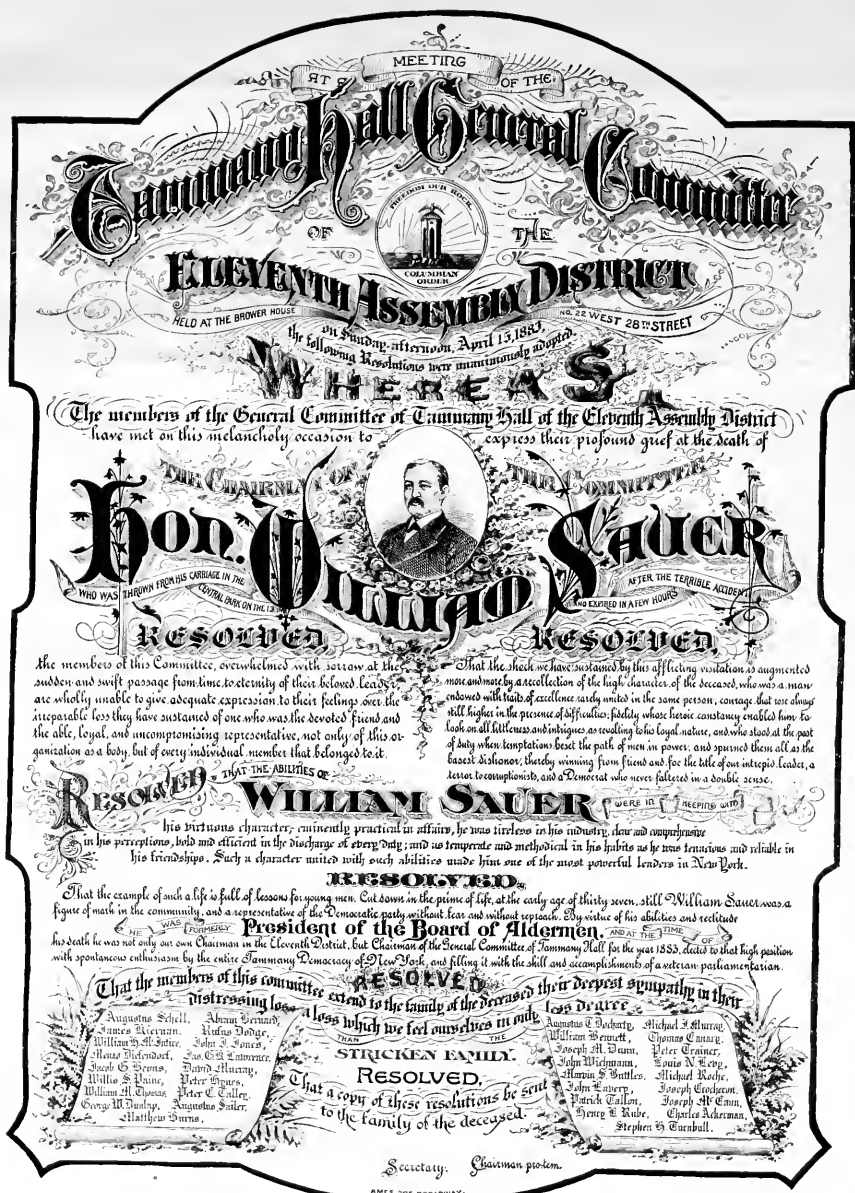 AT A MEETING OF THE
Tammany Hall General Committee
OF THE
FREEDOM OUR ROCK
COLUMBIAN
ORDER
ELEVENTH ASSEMBLY DISTRICT
HELD AT THE BROWER HOUSE NO. 22 WEST 28TH STREET
on Sunday afternoon, April 15, 1883,
the following Resolutions were unanimously adopted.
WHEREAS,
The members of the General Committee of Tammany Hall of the Eleventh Assembly District
have met on this melancholy occasion to express their profound grief at the death of
THE CHAIRMAN OF THE COMMITTEE
Hon. William Sauer
WHO WAS THROWN FROM HIS CARRIAGE IN THE
CENTRAL PARK ON THE 13
AFTER THE TERRIBLE ACCIDENT
AND EXPIRED IN A FEW HOURS
RESOLVED,
the members of this Committee, overwhelmed with sorrow at the
sudden and swift passage from time to eternity of their beloved
are wholly unable to give adequate expression to their feelings over the
irreparable loss they have sustained of one who was the devoted friend and
the able, loyal, and uncompromising representative, not only of this or-
ganization as a body, but of every individual member that belonged to it.
RESOLVED,
That the shock we have sustained by this afflicting visitation is augmented
more and more by a recollection of the high character of the deceased, who was a man
endowed with traits of excellence rarely united in the same person, courage that rose always
still higher in the presence of difficulties; fidelity whose heroic constancy enabled him to
look on all littleness and intrigues as revolting to his loyal nature, and who stood at the post
of duty when temptations beset the path of men in power, and spurned them all as the
basest dishonor, thereby winning from friend and foe the title of our intrepid leader, a
terror to corruptionists, and a Democrat who never faltered in a double sense.
RESOLVED, THAT THE ABILITIES OF
WILLIAM SAUER WERE IN KEEPING WITH
his virtuous character; eminently practical in affairs, he was tireless in his industry, clear and comprehensive
in his perceptions, bold and efficient in the discharge of every duty; and as temperate and methodical in his habits as he was tenacious and reliable in
his friendships. Such a character united with such abilities made him one of the most powerful leaders in New York.
RESOLVED,
That the example of such a life is full of lessons for young men. Cut down in the prime of life, at the early age of thirty seven, still William Sauer was a
figure of mark in the community, and a representative of the Democratic party without fear and without reproach. By virtue of his abilities and rectitude
HE WAS FORMERLY President of the Board of Aldermen, AND AT THE TIME OF
his death he was not only our own Chairman in the Eleventh District, but Chairman of the General Committee of Tammany Hall for the year 1883, elected to that high position
with spontaneous enthusiasm by the entire Tammany Democracy of New York, and filling it with the skill and accomplishments of a veteran parliamentarian.
RESOLVED
That the members of this committee extend to the family of the deceased their deepest sympathy in their
distressing loss a loss which we feel ourselves in only less degree
THAN THE
STRICKEN FAMILY.
RESOLVED,
That a copy of these resolutions be sent
to the family of the deceased.
Augustus Schell, Abram Bernard,
James Kiernan, Rufus Dodge,
William H. McIntire, John J. Jones,
Menzo Diefendorf, Jas. G. B. Lawrence,
Jacob G. Bevus, David Murray,
Willis S. Paine, Peter Hynes,
William M. Thomas, Peter C. Talley,
George W. Dunlap, Augustus Sailer,
Matthew Burns,
Augustus T. Docharty, Michael J. Murray,
William Bennett, Thomas Canary,
Joseph M. Dunn, Peter Trainer,
John Wichmann, Louis N. Levy,
Marvin S. Buttles, Michael Roche,
John Lavery, Joseph Crocheron,
Patrick Tallon, Joseph McCann,
Henry E. Rube, Charles Ackerman,
Stephen H. Turnbull.
Secretary. Chairman pro tem.